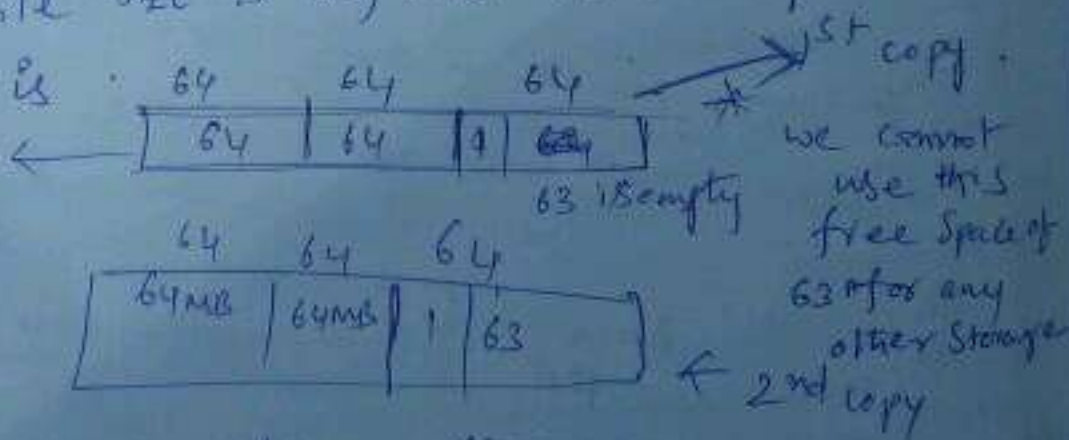 size is
is . 64 64 64
64 64 1
63 is empty
1st copy .
we cannot
use this
free space of
63 for any
other Storage
64 64 64
64MB 64MB 1 63
2nd copy